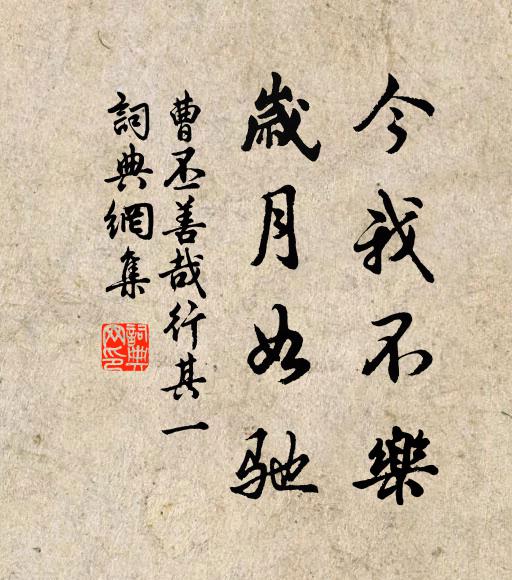 今我不樂
歲月如馳
曹丕善哉行其一
詞典網集
詞典网印